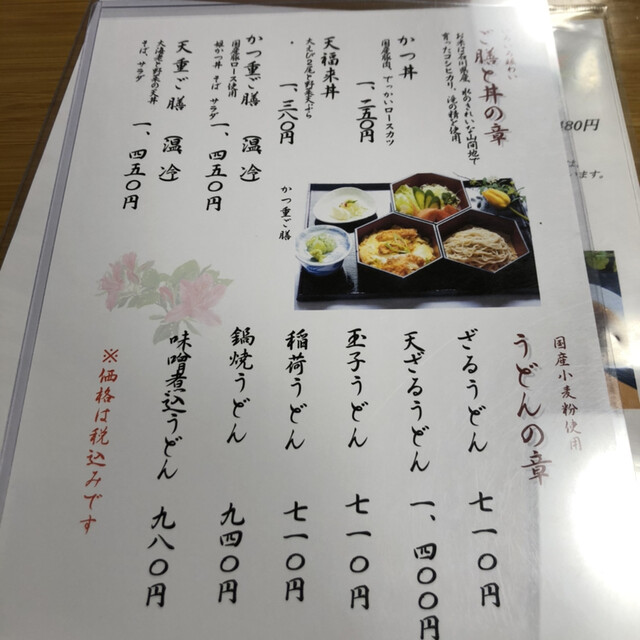 ご膳と丼の章
お米は石川県産 水のきれいな山間地で
育ったコシヒカリ、
かつ丼
国産豚肉、でっかいロースカツ
一、二五〇円
天福来丼
大えび2尾と野菜天ぷら
一、三八〇円
かつ重ご膳 (温 冷)
国産豚ロース使用
姫かつ丼 そば サラダ
一、四五〇円
天重ご膳 (温 冷)
大海老と野菜の天丼
そば、サラダ
一、四五〇円
かつ重ご膳
国産小麦粉使用
うどんの章
ざるうどん 七一〇円
天ざるうどん 一、四〇〇円
玉子うどん 七一〇円
稲荷うどん 七一〇円
鍋焼うどん 九四〇円
味噌煮込うどん 九八〇円
※価格は税込みです
480円
います。